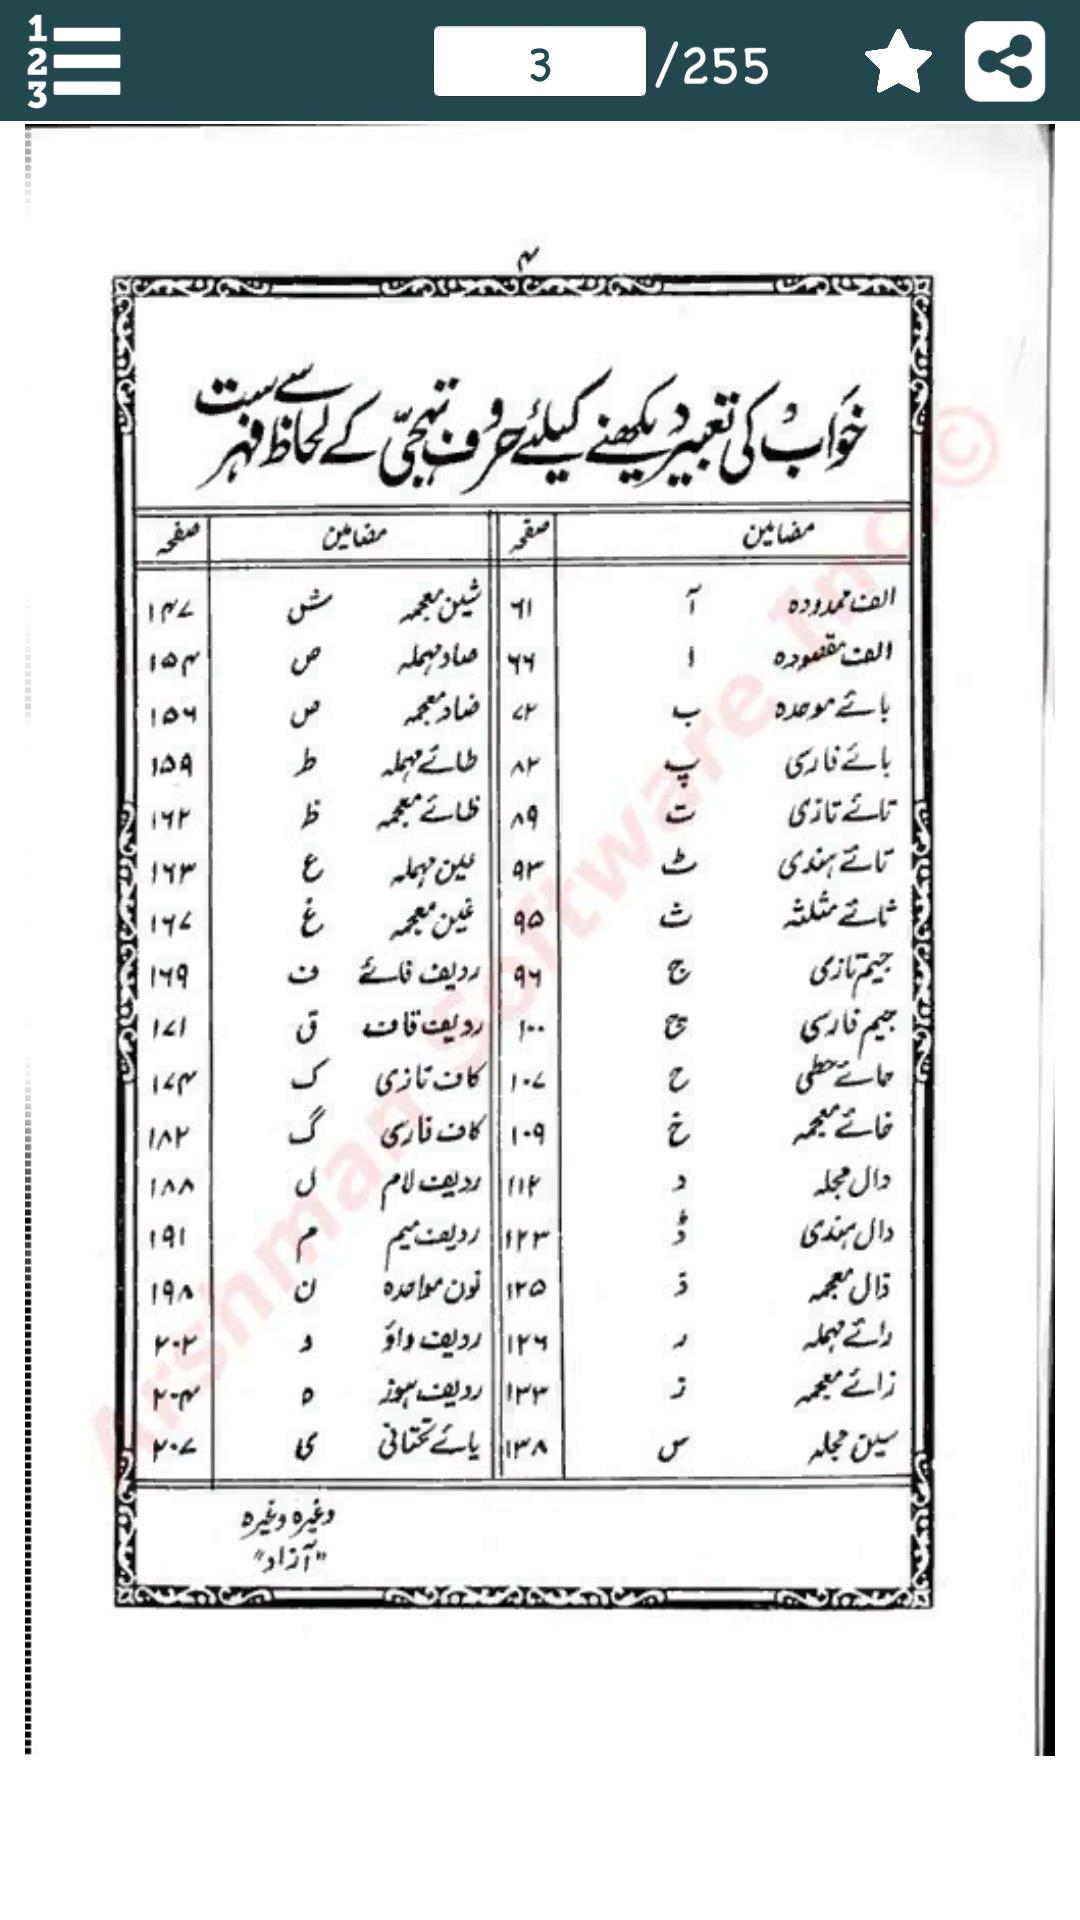 1
2
3
3 /255
۴
خواب کی تعبیر دیکھنے کیلئے حروف تہجی کے لحاظ سے فہرست
مضامین صفحہ مضامین صفحہ
الف ممدودہ آ ۶۱ شین معجمہ ش ۱۴۷
الف مقصورہ ا ۶۶ صاد مہملہ ص ۱۵۴
بائے موحدہ ب ۷۲ ضاد معجمہ ص ۱۵۶
بائے فارسی پ ۸۲ طائے مہملہ ط ۱۵۹
تائے تازی ت ۸۹ ظائے معجمہ ظ ۱۶۲
تائے ہندی ٹ ۹۳ عین مہملہ ع ۱۶۳
ثائے مثلثہ ث ۹۵ غین معجمہ غ ۱۶۷
جیم تازی ج ۹۶ ردیف فائے ف ۱۶۹
جیم فارسی چ ۱۰۰ ردیف قاف ق ۱۷۱
حائے حطی ح ۱۰۷ کاف تازی ک ۱۷۴
خائے معجمہ خ ۱۰۹ کاف فارسی گ ۱۸۲
دال مجلہ د ۱۱۲ ردیف لام ل ۱۸۸
دال ہندی ڈ ۱۲۳ ردیف میم م ۱۹۱
ذال معجمہ ذ ۱۲۵ نون مواحدہ ن ۱۹۸
رائے مہملہ ر ۱۲۶ ردیف واؤ و ۲۰۲
زائے معجمہ ز ۱۳۳ ردیف ہوز ہ ۲۰۴
سین مجلہ س ۱۳۸ یائے تحتانی ی ۲۰۷
وغیرہ وغیرہ
"آزاد"
Arshman Software Inc. ©